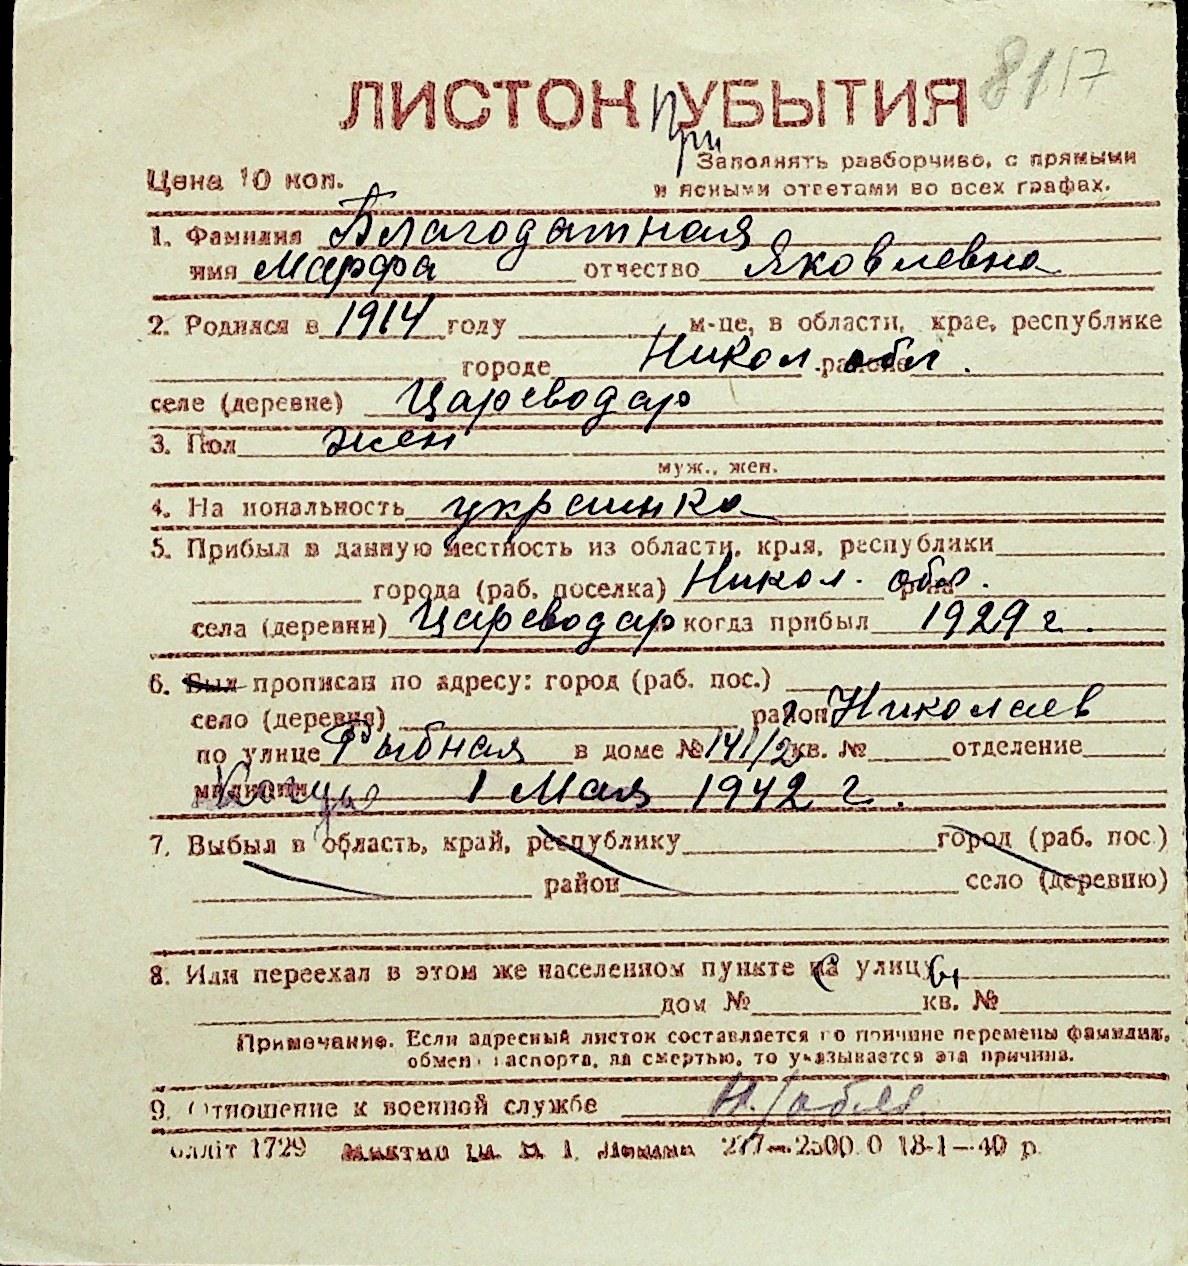 8117
ЛИСТОК УБЫТИЯ
При
Заполнять разборчиво, с прямыми
Цена 10 коп.
и ясными ответами во всех графах.
1. Фамилия Благодатная
имя Марфа отчество Яковлевна
2. Родился в 1914 году м-це, в области, крае, республике
городе Никол. обл. районе
селе (деревне) Цареводар
3. Пол жен
муж., жен.
4. На иональность украинка
5. Прибыл в данную местность из области, края, республики
города (раб. поселка) Никол. обл. р-на
села (деревни) Цареводар когда прибыл 1929 г.
6. Был прописан по адресу: город (раб. пос.)
село (деревня) район г. Николаев
по улице Рыбная в доме № 141/2 кв. № отделение
милиции 1 Мая 1942 г.
7. Выбыл в область, край, республику город (раб. пос.)
район село (деревню)
8. Или переехал в этом же населенном пункте на улицу
дом № кв. №
Примечание. Если адресный листок составляется по причине перемены фамилии,
обмен паспорта, за смертью, то указывается эта причина.
9. Отношение к военной службе
1729 277—2500.0 18-1—40 р.